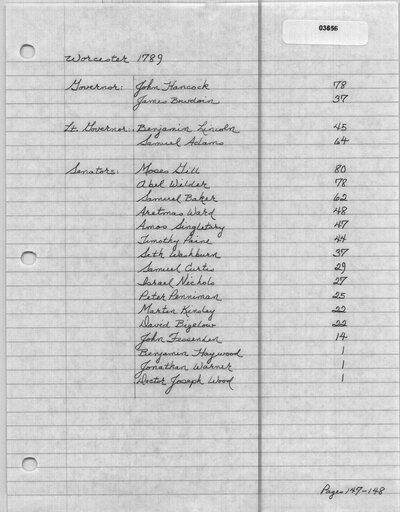 03656
Worcester 1789
Governor: John Hancock 78
James Bowdoin 37
Lt. Governor: Benjamin Lincoln 45
Samuel Adams 64
Senators: Moses Gill 80
Abel Wilder 78
Samuel Baker 62
Aretmas Ward 48
Amos Singletary 47
Timothy Paine 44
Seth Washburn 37
Samuel Curtis 29
Israel Nichols 27
Peter Penniman 25
Martin Kinsley 22
David Bigelow 22
John Fessenden 14
Benjamin Haywood 1
Jonathan Warner 1
Doctor Joseph Wood 1
Pages 147-148